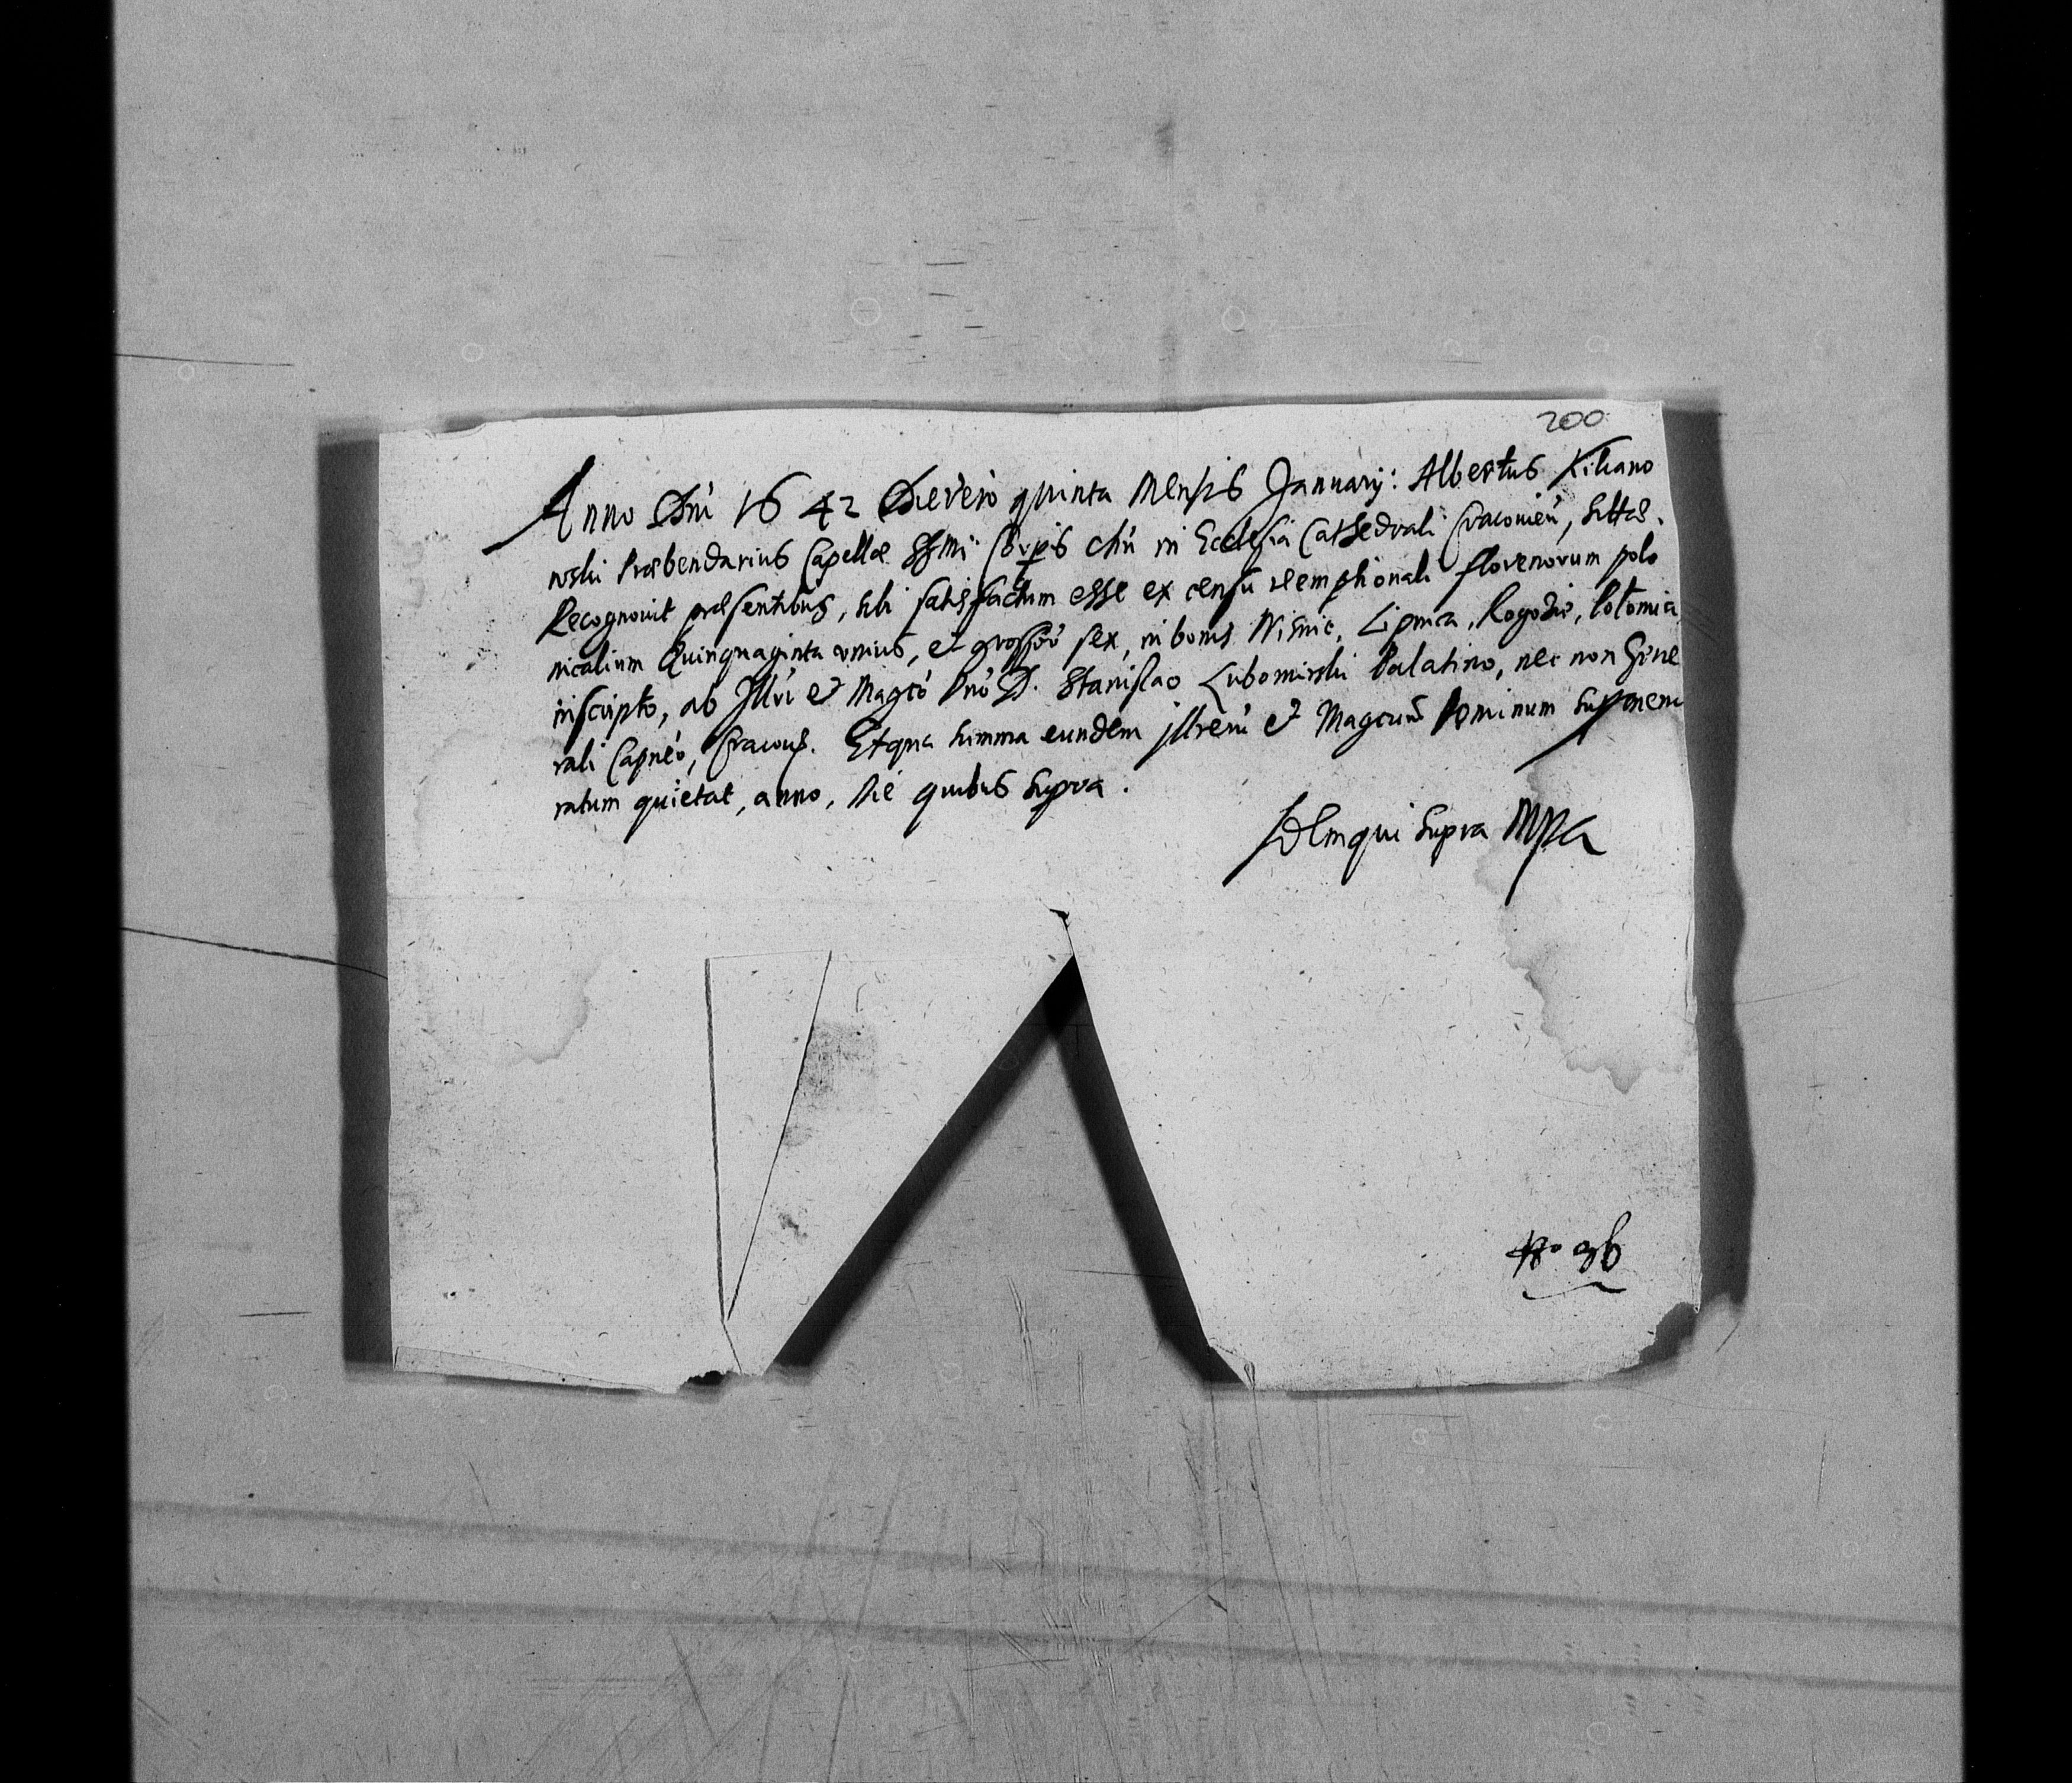 200
Anno Dni 1642 Die vero quinta Mensis Januarij: Albertus Kiliano
wski Præbendarius Capellæ SSmi Corpis Chri in Ecclesia Cathedrali Cracovien,
Recognovit præsentibus, sibi satisfactum esse ex censu reemptionali florenorum polo
nicalium Quinquaginta unius, et grossor sex, in bonis Wisnic, Lipnica, Rogozie, Polomia
inscripto, ab Illri et Magco Dno D. Stanislao Lubomirski Palatino, nec non Gene
rali Capneo, Cracovs. Et qua summa eundem illrem et Magcum Dominum supmemo
ratum quietat, anno, die quibus supra.
Idem qui supra Mpa
No 36